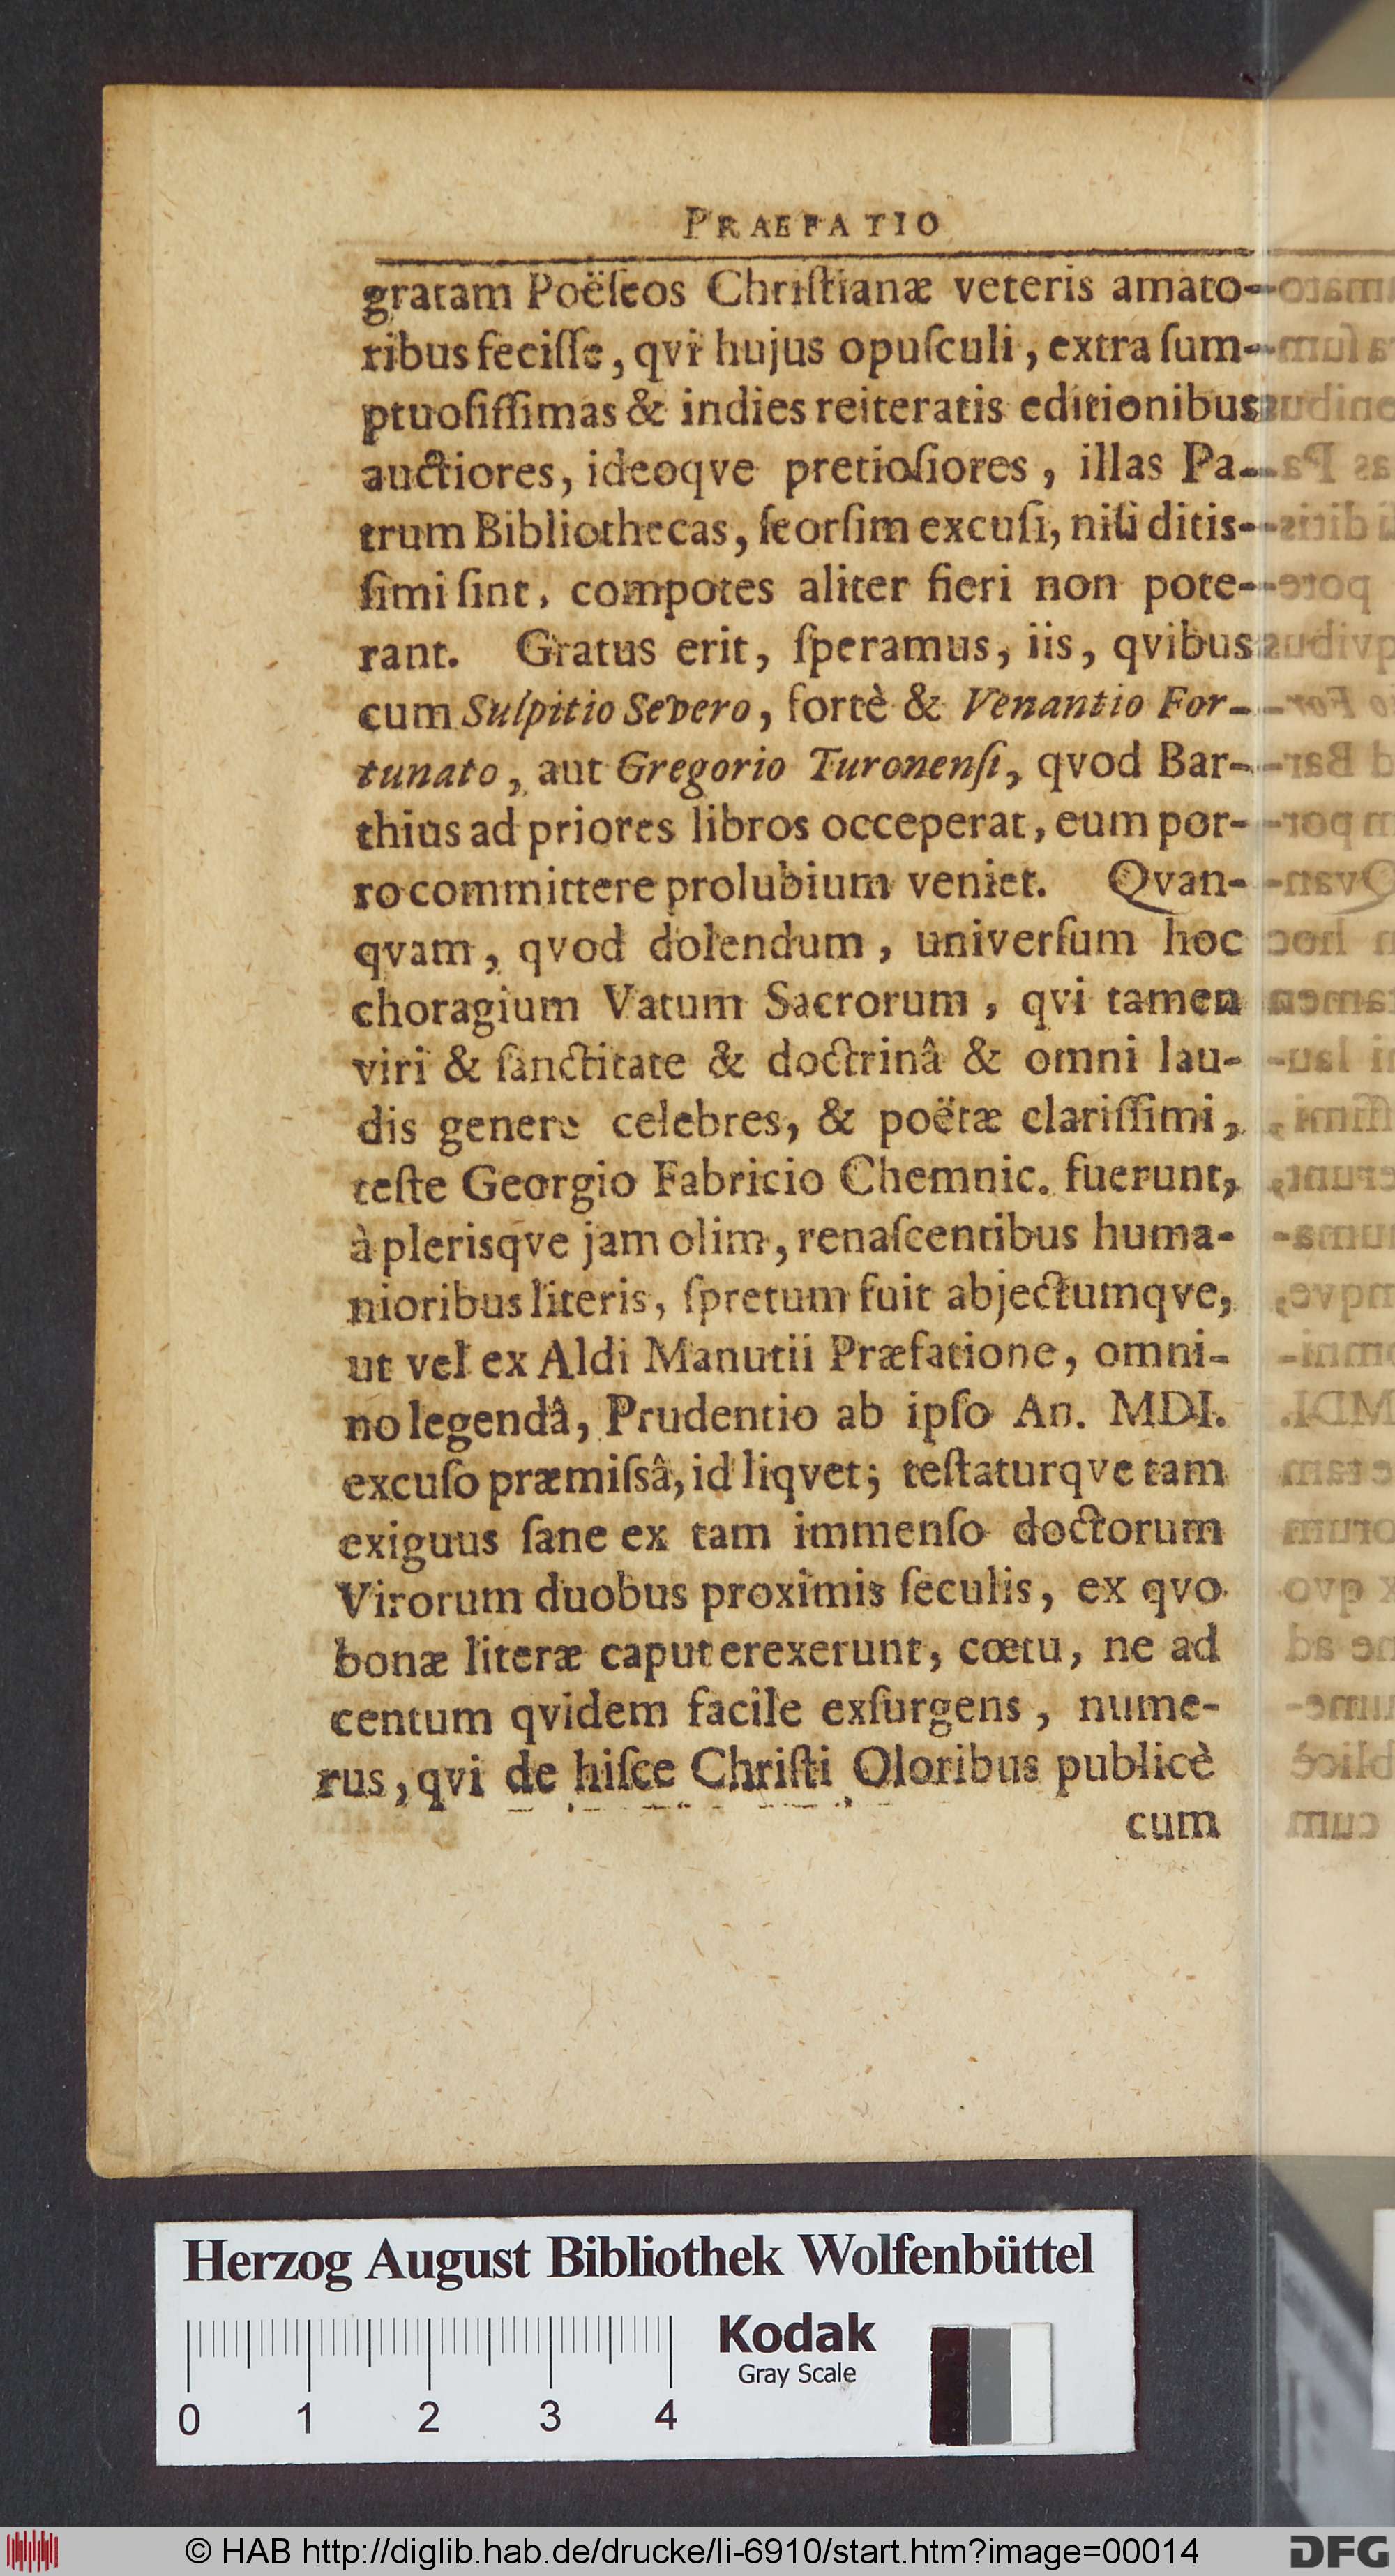 PRAEFATIO
gratam Poëſeos Chriſtianæ veteris amato-
ribus feciſſe, qvi hujus opuſculi, extra ſum-
ptuoſiſſimas & indies reiteratis editionibus
auctiores, ideoqve pretioſiores, illas Pa-
trum Bibliothecas, ſeorſim excuſi, niſi ditis-
ſimi ſint, compotes aliter fieri non pote-
rant. Gratus erit, ſperamus, iis, qvibus
cum Sulpitio Severo, fortè & Venantio For-
tunato, aut Gregorio Turonenſi, qvod Bar-
thius ad priores libros occeperat, eum por-
ro committere prolubium veniet. Qvan-
qvam, qvod dolendum, univerſum hoc
choragium Vatum Sacrorum, qvi tamen
viri & ſanctitate & doctrinâ & omni lau-
dis genere celebres, & poëtæ clariſſimi,
teſte Georgio Fabricio Chemnic. fuerunt,
à plerisqve jam olim, renaſcentibus huma-
nioribus literis, ſpretum fuit abjectumqve,
ut vel ex Aldi Manutii Præfatione, omni-
no legendâ, Prudentio ab ipſo An. MDI.
excuſo præmiſsâ, id liqvet; teſtaturqve tam
exiguus ſane ex tam immenſo doctorum
Virorum duobus proximis ſeculis, ex qvo
bonæ literæ caput erexerunt, cœtu, ne ad
centum qvidem facile exſurgens, nume-
rus, qvi de hiſce Chriſti Oloribus publicè
cum
Herzog August Bibliothek Wolfenbüttel
Kodak
Gray Scale
0 1 2 3 4
© HAB http://diglib.hab.de/drucke/li-6910/start.htm?image=00014
DFG